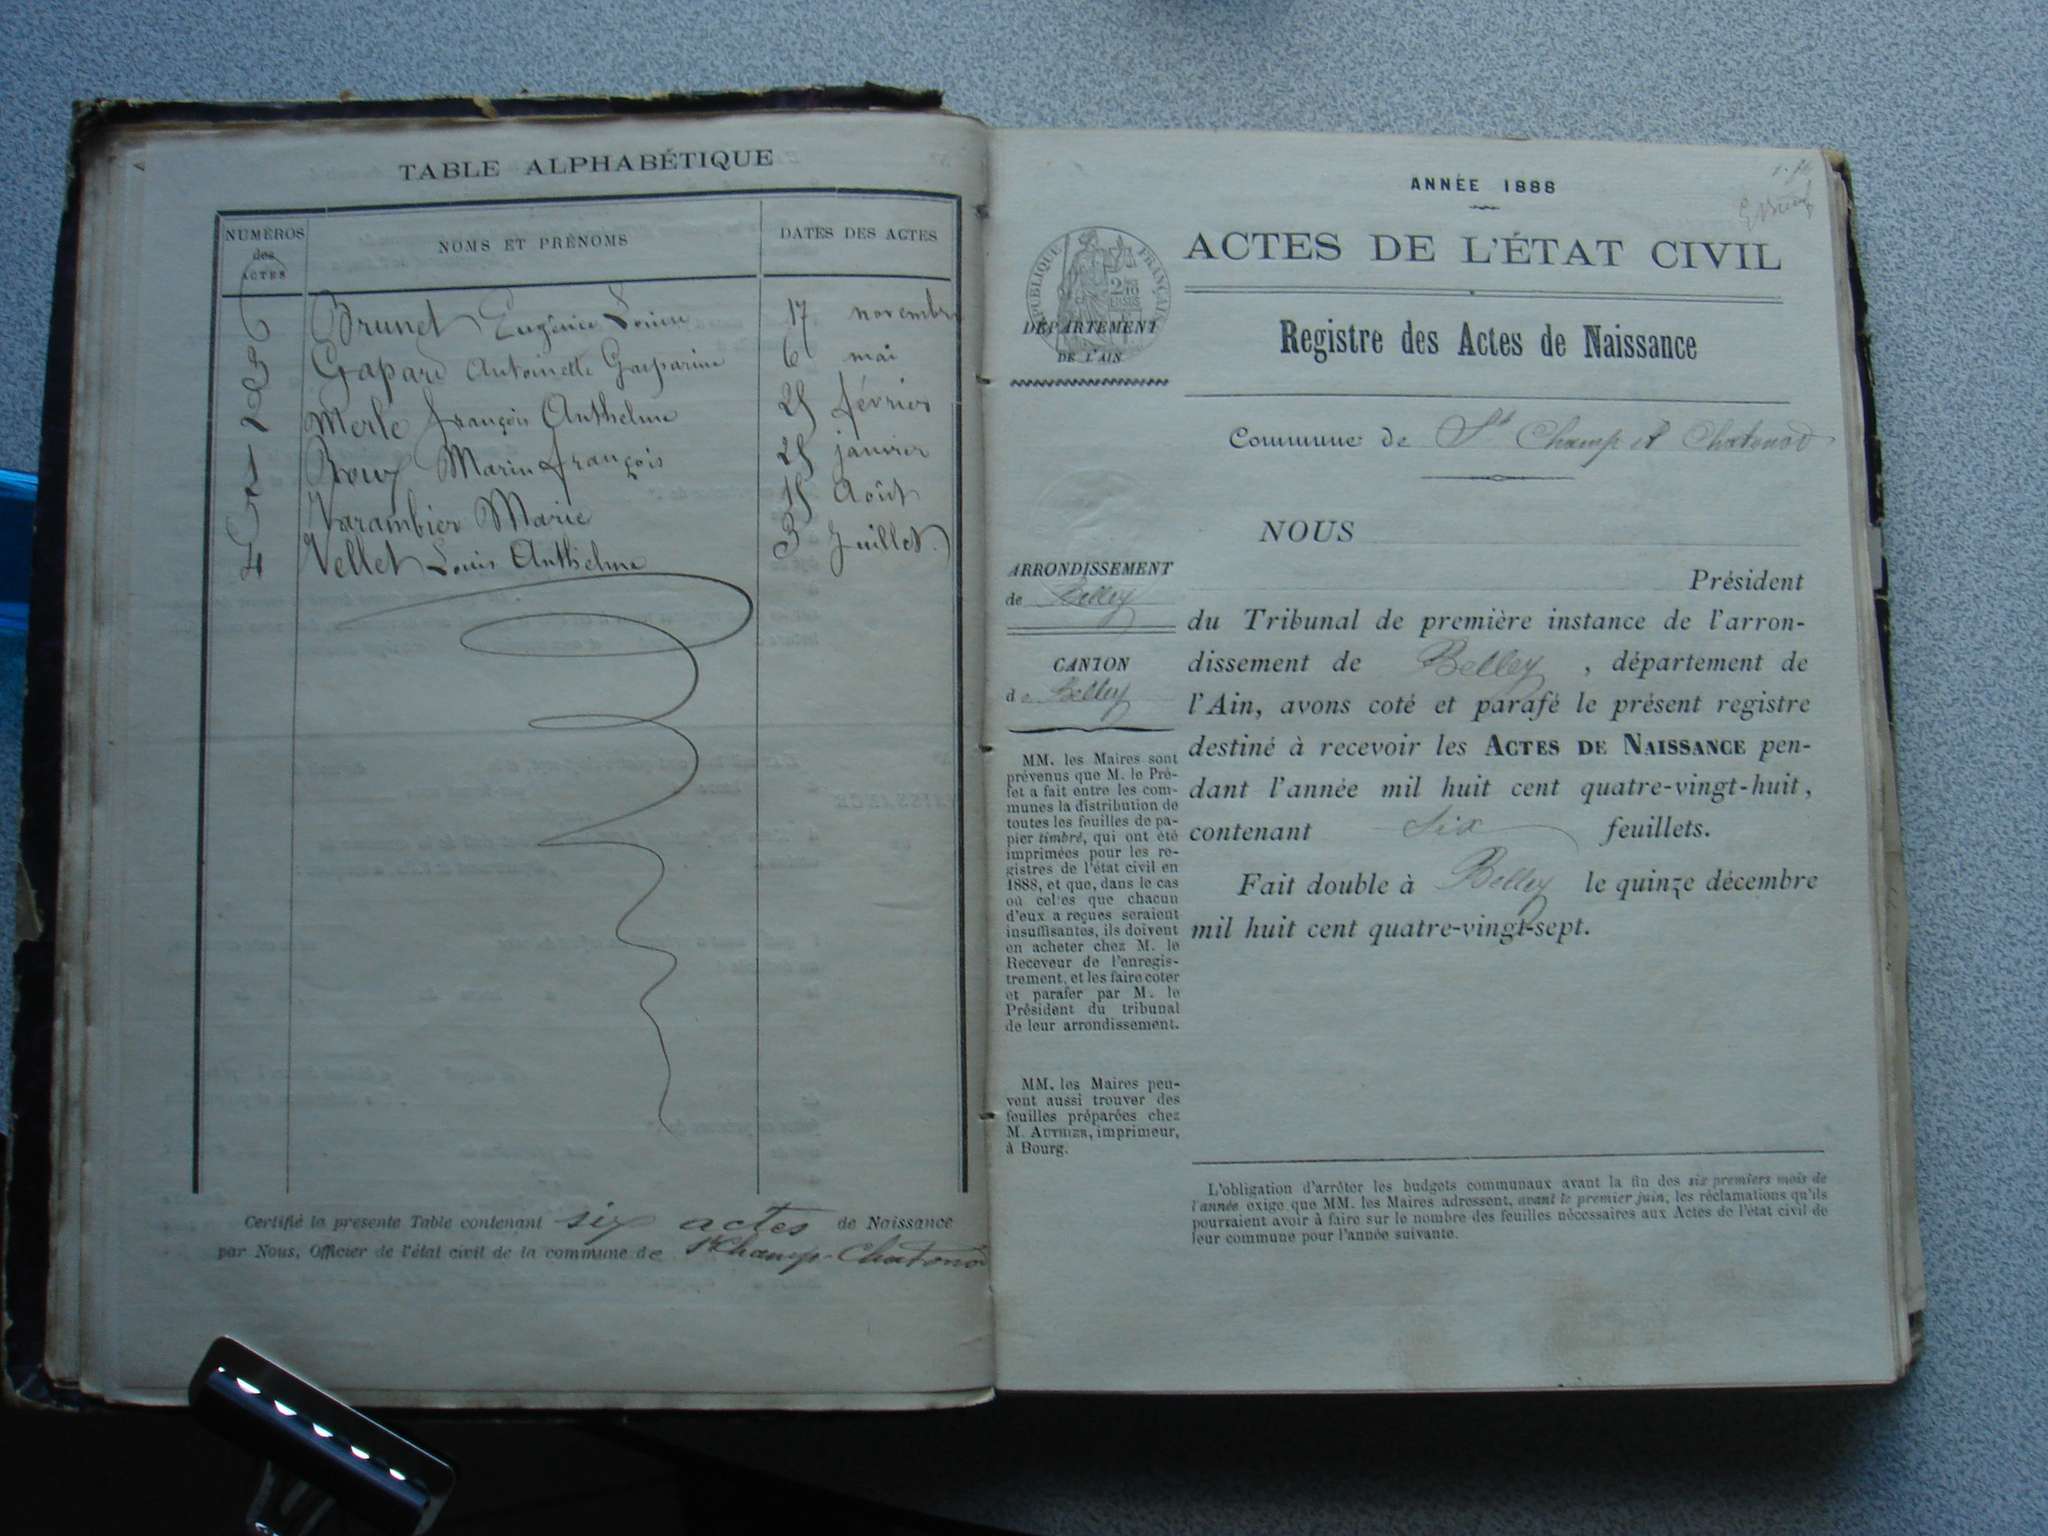 TABLE ALPHABÉTIQUE
NUMÉROS des ACTES
NOMS ET PRÉNOMS
DATES DES ACTES
6 Brunet Eugénie Louise 17 novembre
3 Gapard Antoinette Gasparine 6 mai
2 Merle François Anthelme 25 février
1 Roux Marin François 25 janvier
5 Varambier Marie 15 Août
4 Vellet Louis Anthelme 3 Juillet
Certifié la présente Table contenant six actes de Naissance
par Nous, Officier de l'état civil de la commune de St Champ-Chatonod
ANNÉE 1888
RÉPUBLIQUE FRANÇAISE
ACTES DE L'ÉTAT CIVIL
DÉPARTEMENT
DE L'AIN
Registre des Actes de Naissance
Commune de St Champ et Chatonod
ARRONDISSEMENT
de Belley
CANTON
de Belley
MM. les Maires sont
prévenus que M. le Pré-
fet a fait entre les com-
munes la distribution de
toutes les feuilles de pa-
pier timbré, qui ont été
imprimées pour les re-
gistres de l'état civil en
1888, et que, dans le cas
où celles que chacun
d'eux a reçues seraient
insuffisantes, ils doivent
en acheter chez M. le
Receveur de l'enregis-
trement, et les faire coter
et parafer par M. le
Président du tribunal
de leur arrondissement.
MM. les Maires peu-
vent aussi trouver des
feuilles préparées chez
M. AUTHIER, imprimeur,
à Bourg.
NOUS
Président
du Tribunal de première instance de l'arron-
dissement de Belley, département de
l'Ain, avons coté et parafé le présent registre
destiné à recevoir les ACTES DE NAISSANCE pen-
dant l'année mil huit cent quatre-vingt-huit,
contenant six feuillets.
Fait double à Belley le quinze décembre
mil huit cent quatre-vingt-sept.
L'obligation d'arrêter les budgets communaux avant la fin des six premiers mois de
l'année exige que MM. les Maires adressent, avant le premier juin, les réclamations qu'ils
pourraient avoir à faire sur le nombre des feuilles nécessaires aux Actes de l'état civil de
leur commune pour l'année suivante.